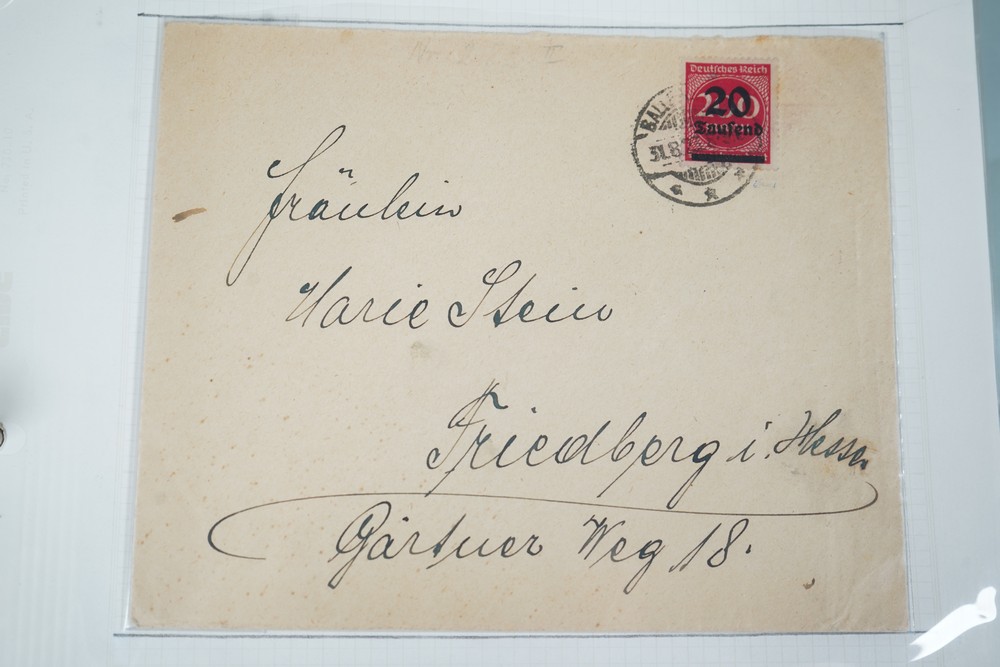 Deutsches Reich
20
Tausend
200
Fräulein
Marie Stein
Friedberg i. Hessen
Gärtner Weg 18.